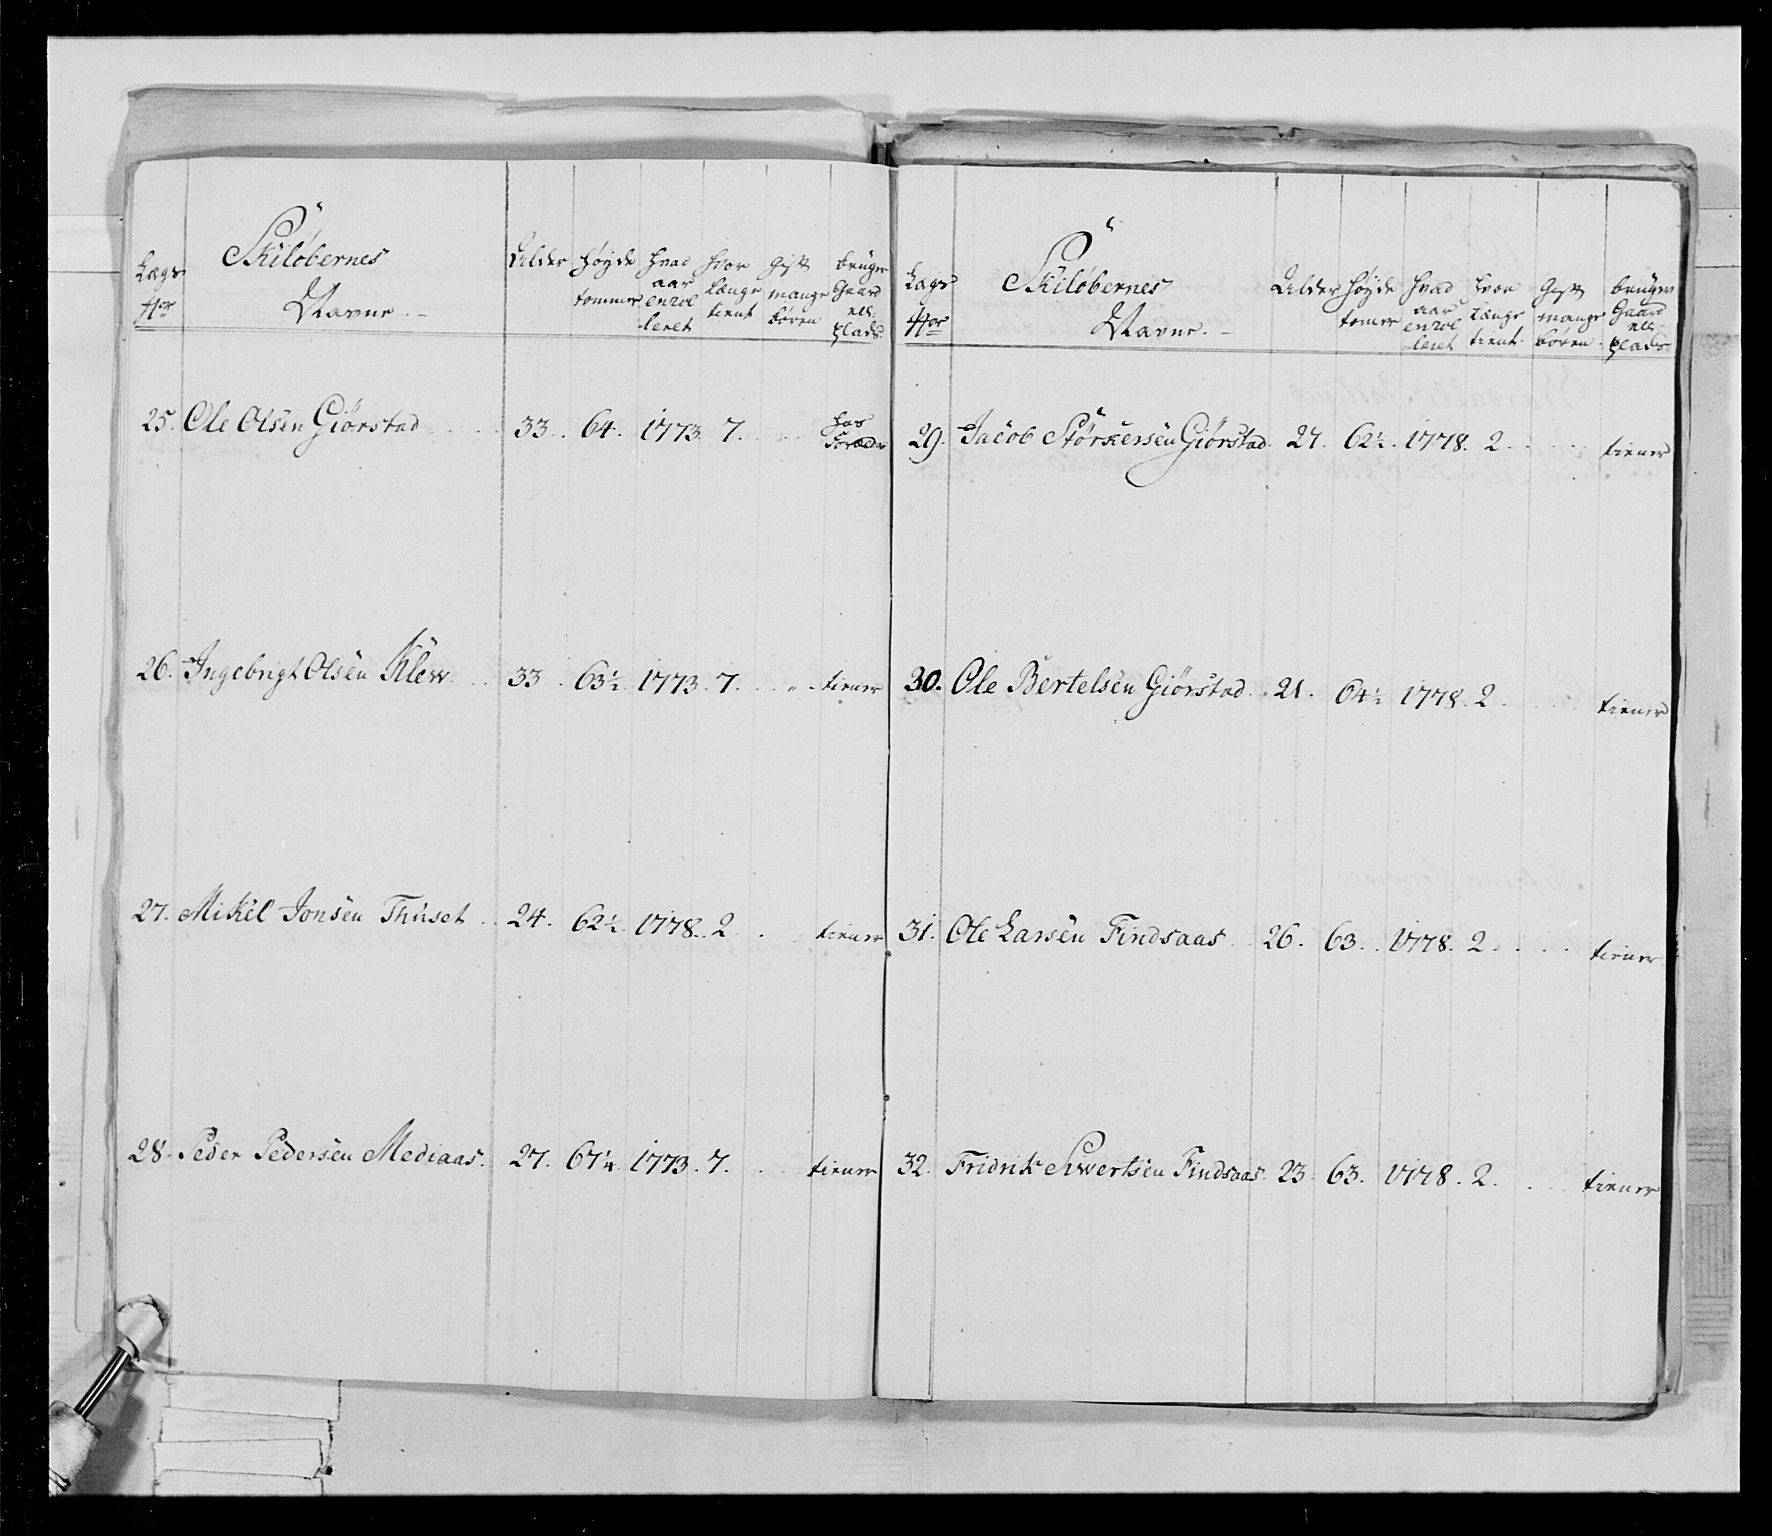 Lægs Nor
Skilöbernes Navne.
Alder
Høyde tommer
hvad aar enrolleret
hvor længe tient
Gift mange börn
bruger Gaard ell: plads
25. Ole Olsen Giörstad 33. 64. 1773. 7. hos Foræld
26. Ingebrigt Olsen Klew 33. 63½ 1773. 7. tiener
27. Mikel Jonsen Thuset 24. 62½ 1778. 2 tiener
28. Peder Pedersen Mediaas. 27. 67¼ 1773. 7. tiener
Lægs Nor
Skilöbernes Navne.
Alder
høyde tomer
hvad aar enrolleret
hvor længe tient.
Gift mange børn.
bruger Gaard ell: plads
29. Jacob Störkersen Giörstad. 27. 62½. 1778. 2. tiener
30. Ole Bertelsen Giörstad. 21. 64½ 1778. 2. tiener
31. Ole Larsen Findsaas 26. 63. 1778. 2. tiener
32. Fridrik Siwertsen Findsaas. 23. 63. 1778. 2. tiener